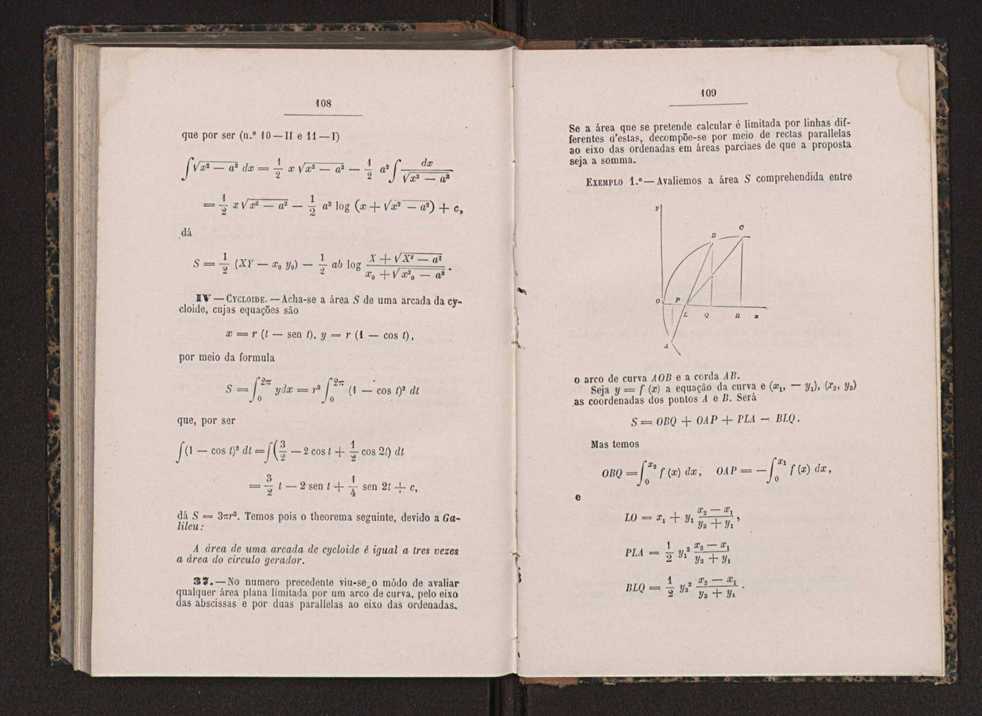 108
que por ser (n.º 10 — II e 11 — I)
∫√x² — a² dx = 1/2 x √x² — a² — 1/2 a² ∫ dx/√x² — a²
= 1/2 x √x² — a² — 1/2 a² log (x + √x² — a²) + c,
dá
S = 1/2 (XY — x₀ y₀) — 1/2 ab log X + √X² — a² / x₀ + √x²₀ — a² .
IV — CYCLOIDE. — Acha-se a área S de uma arcada da cy-
cloide, cujas equações são
x = r (t — sen t), y = r (1 — cos t),
por meio da formula
S = ∫₀^2π ydx = r² ∫₀^2π (1 — cos t)² dt
que, por ser
∫(1 — cos t)² dt = ∫(3/2 — 2 cos t + 1/2 cos 2t) dt
= 3/2 t — 2 sen t + 1/4 sen 2t + c,
dá S = 3πr². Temos pois o theorema seguinte, devido a Ga-
lileu:
A área de uma arcada de cycloide é igual a tres vezes
a área do circulo gerador.
37. — No numero precedente viu-se o módo de avaliar
qualquer área plana limitada por um arco de curva, pelo eixo
das abscissas e por duas parallelas ao eixo das ordenadas.
109
Se a área que se pretende calcular é limitada por linhas dif-
ferentes d'estas, decompõe-se por meio de rectas parallelas
ao eixo das ordenadas em áreas parciaes de que a proposta
seja a somma.
EXEMPLO 1.º — Avaliemos a área S comprehendida entre
Y
B C
O P L Q R x
A
o arco de curva AOB e a corda AB.
Seja y = f (x) a equação da curva e (x₁, — y₁), (x₂, y₂)
as coordenadas dos pontos A e B. Será
S = OBQ + OAP + PLA — BLQ.
Mas temos
OBQ = ∫₀^x₂ f (x) dx, OAP = — ∫₀^x₁ f (x) dx,
e
LO = x₁ + y₁ x₂ — x₁ / y₂ + y₁ ,
PLA = 1/2 y₁² x₂ — x₁ / y₂ + y₁
BLQ = 1/2 y₂² x₂ — x₁ / y₂ + y₁ .